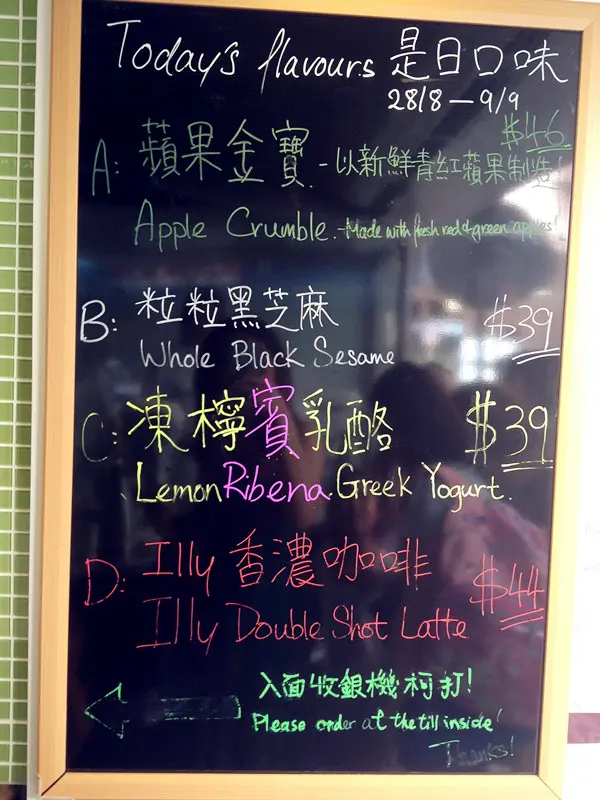 Today's flavours 是日口味
28/8 — 9/9
$46
A: 蘋果金寶 - 以新鮮青紅蘋果制造!
Apple Crumble. - Made with fresh red & green apples!
B: 粒粒黑芝麻 $39
Whole Black Sesame
C: 凍檸賓乳酪 $39
Lemon Ribena Greek Yogurt.
D: Illy 香濃咖啡 $44
Illy Double Shot Latte
入面收銀機柯打!
Please order at the till inside!
Thanks!